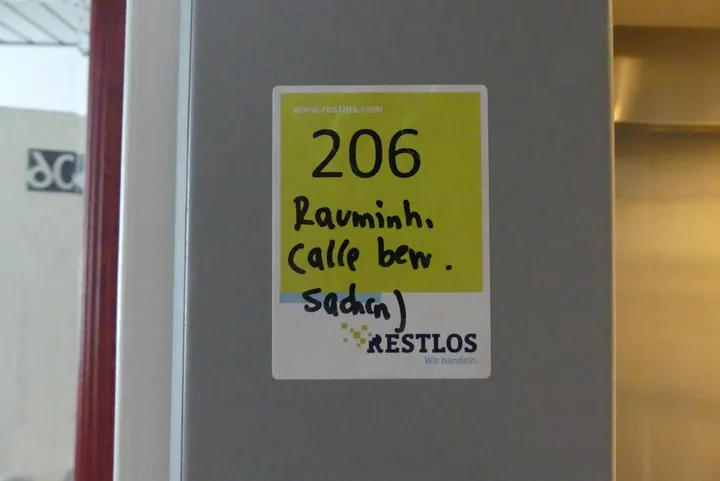 www.restlos.com
206
Rauminh.
(alle bew.
Sachen)
RESTLOS
Wir handeln.